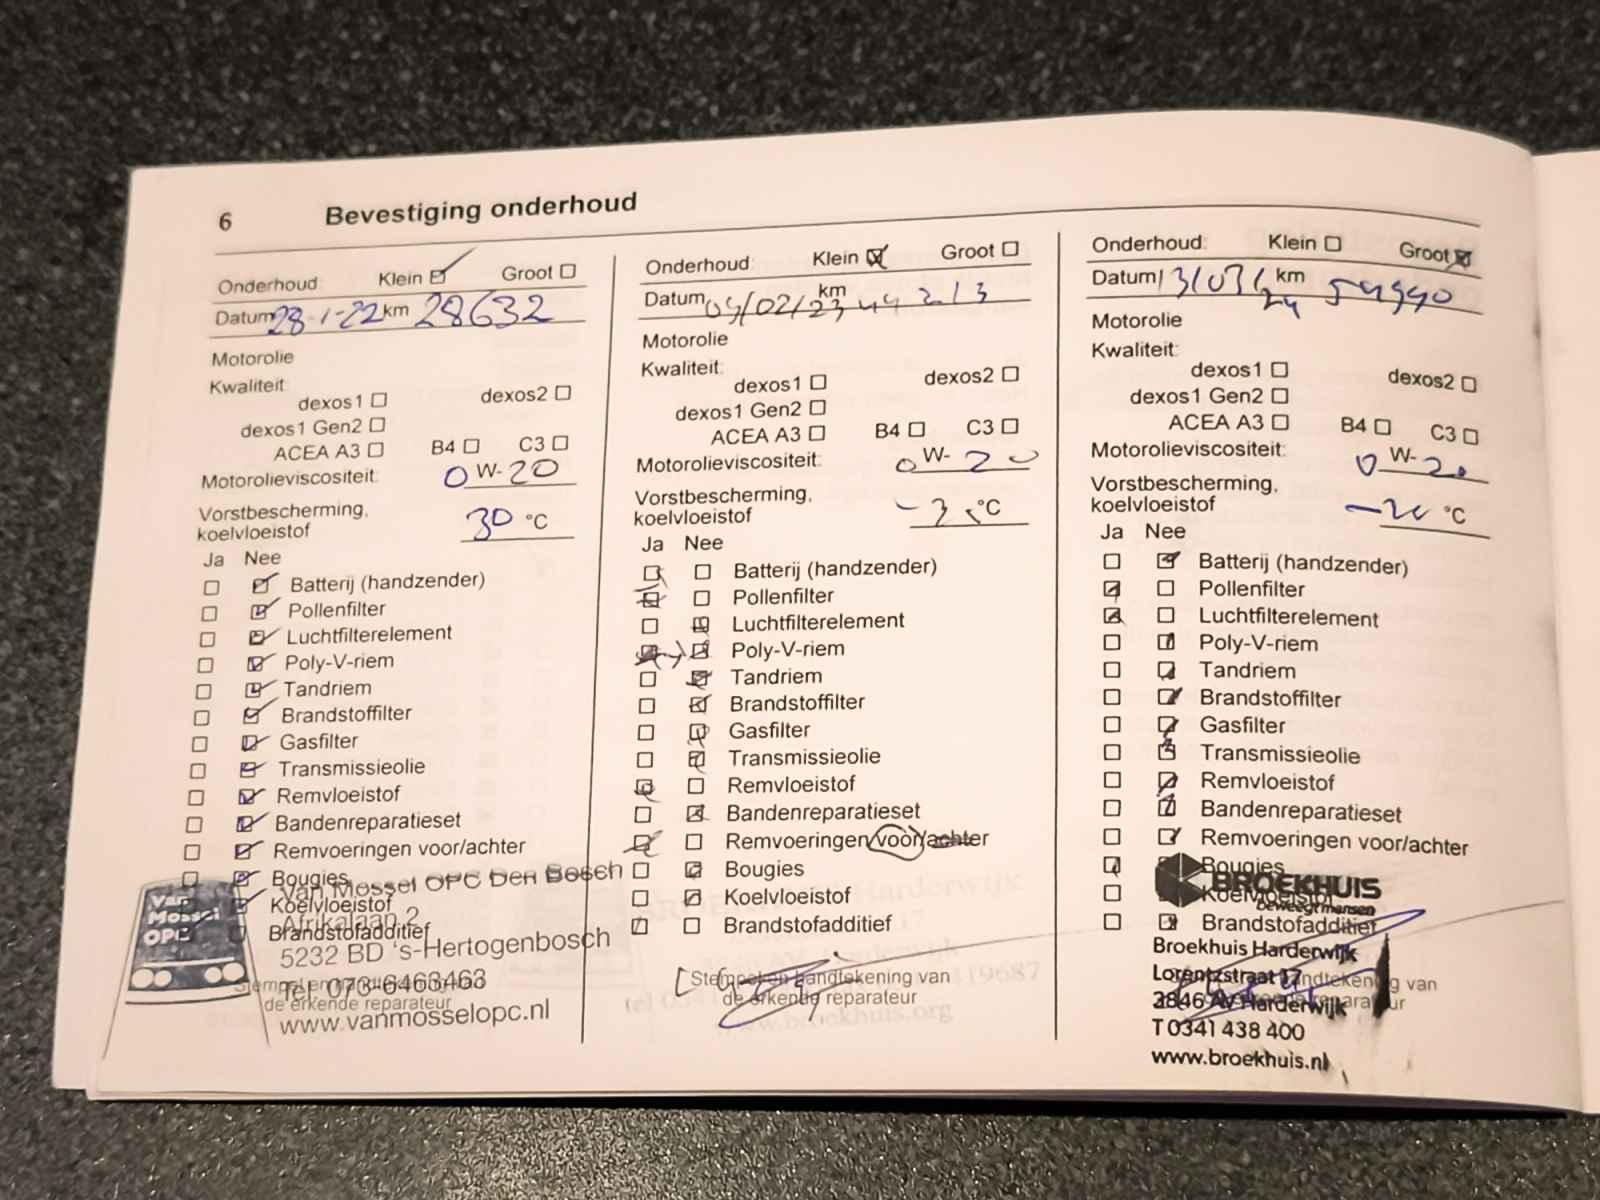 6 Bevestiging onderhoud
Onderhoud: Klein Groot
Datum 28-1-22 km 28632
Motorolie
Kwaliteit:
dexos1 dexos2
dexos1 Gen2
ACEA A3 B4 C3
Motorolieviscositeit: 0 W- 20
Vorstbescherming,
koelvloeistof 30 °C
Ja Nee
Batterij (handzender)
Pollenfilter
Luchtfilterelement
Poly-V-riem
Tandriem
Brandstoffilter
Gasfilter
Transmissieolie
Remvloeistof
Bandenreparatieset
Remvoeringen voor/achter
Bougies
Koelvloeistof
Brandstofadditief
Stempel en handtekening van
de erkende reparateur
Van
Mossel
OPC
Van Mossel OPC Den Bosch
Afrikalaan 2
5232 BD 's-Hertogenbosch
Tel. 073-6463463
www.vanmosselopc.nl
Onderhoud: Klein Groot
Datum /02/23 km 44 213
Motorolie
Kwaliteit:
dexos1 dexos2
dexos1 Gen2
ACEA A3 B4 C3
Motorolieviscositeit: 0 W- 20
Vorstbescherming,
koelvloeistof °C
Ja Nee
Batterij (handzender)
Pollenfilter
Luchtfilterelement
Poly-V-riem
Tandriem
Brandstoffilter
Gasfilter
Transmissieolie
Remvloeistof
Bandenreparatieset
Remvoeringen voor/achter
Bougies
Koelvloeistof
Brandstofadditief
Stempel en handtekening van
de erkende reparateur
Onderhoud: Klein Groot
Datum 13/03/24 km
Motorolie
Kwaliteit:
dexos1 dexos2
dexos1 Gen2
ACEA A3 B4 C3
Motorolieviscositeit: 0 W- 20
Vorstbescherming,
koelvloeistof °C
Ja Nee
Batterij (handzender)
Pollenfilter
Luchtfilterelement
Poly-V-riem
Tandriem
Brandstoffilter
Gasfilter
Transmissieolie
Remvloeistof
Bandenreparatieset
Remvoeringen voor/achter
Bougies
Koelvloeistof
Brandstofadditief
BROEKHUIS
beweegt mensen
Broekhuis Harderwijk
Lorentzstraat 17
3846 AV Harderwijk
T 0341 438 400
www.broekhuis.nl